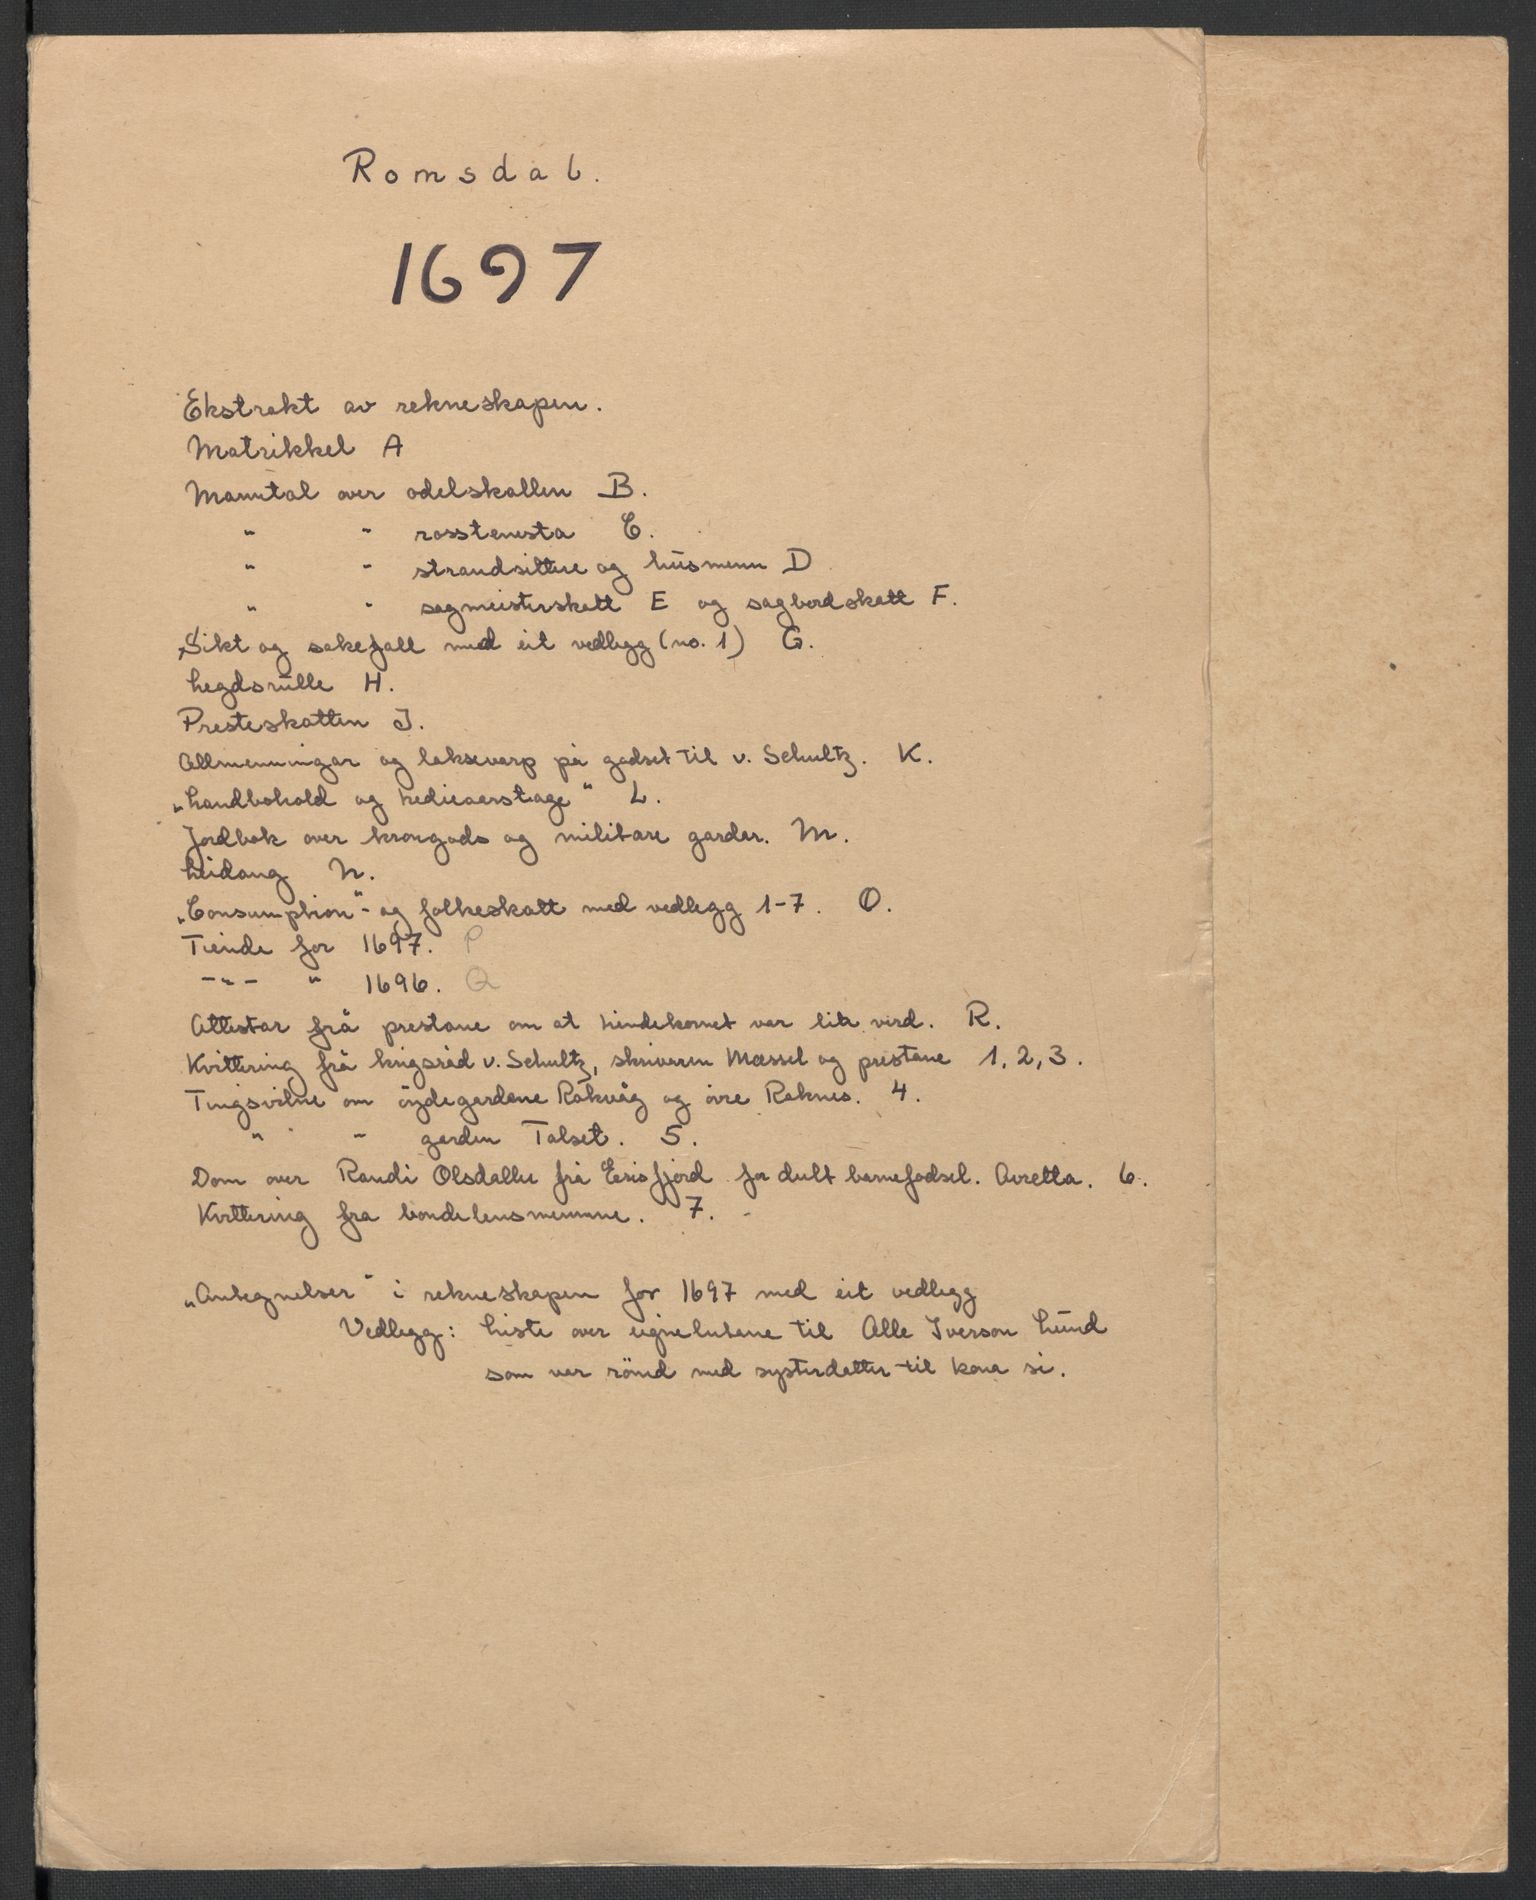 Romsdal.
1697
Ekstrakt av rekneskapen.
Matrikkel A
Manntal over odelskallen B.
" " rosstenesta C.
" " strandsittere og husmenn D
" " sagmeisterskatt E og sagbordskatt F.
Sikt og sakefall med eit vedlegg (no. 1) G.
Legdsrulle H.
Presteskatten J.
Allmenningar og laksevarp på godset til v. Schultz. K.
„Landbohold og tredieaarstage“ L.
Jordbok over krongods og militære garder. M.
Leidang N.
„Consumption“- og folkeskatt med vedlegg 1-7. O.
Tiende for 1697. P
-"- " 1696. Q
Attestar frå prestane om at tiendekornet var lite verd. R.
Kvittering frå krigsråd v. Schultz, skriveren Mæssel og prestane 1, 2, 3.
Tingsvitne om øydegardane Råkvåg og øvre Raknes. 4.
" " garden Talset. 5.
Dom over Randi Olsdatter frå Eirisfjord for dult barnefødsel. Avretta. 6.
Kvittering fra bondelensmennene. 7.
„Antegnelser“ i rekneskapen for 1697 med eit vedlegg
Vedlegg: Liste over eignelutane til Alle Iverson Lund
som var rømd med systerdatter til kona si.